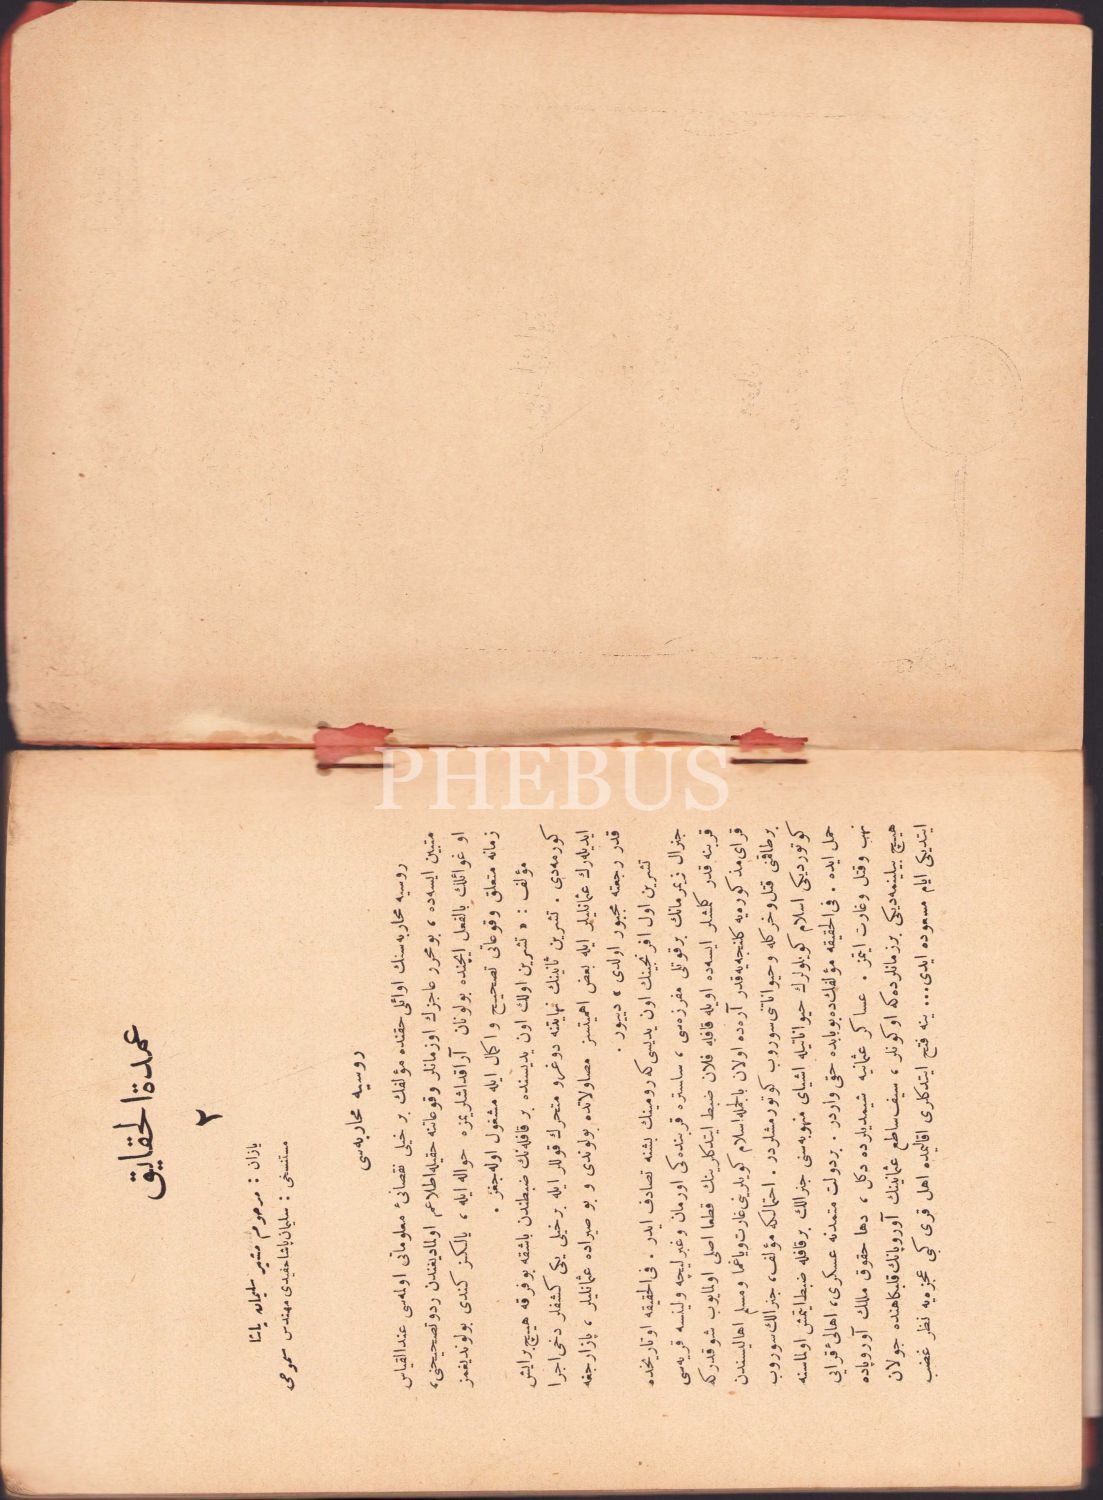 عمدة الحقايق
٢
يازان : مرحوم مشير سليمان پاشا
مستنسخى : سليمان پاشا حفيدى مهندس سموحى
روسيه محاربه‌سى
روسيه محاربه‌سنك اوائلى حقنده مؤلفك برخيلى نقصانىء معلوماتى اولمه‌سى عندالقياس
متبين ايسه‌ده ، بومحرر عاجزك اوزمانلر وقوعاتنه حقيله اطلاعم اولماديغندن ردوتصحيحنى ،
او غوائلك بالفعل ايچنده بولونان آرقداشلريمزه حواله ايله ، يالكز كندى بولونديغمز
زمانه متعلق وقوعاتى تصحيح و اكمال ايله مشغول اوله‌جغز .
مؤلف : « تشرين اولك اون يديسنده بر قافله‌نك ضبطندن باشقه بوفرقه هيچ برايش
كورمه‌دى . تشرين ثانينك نهايتنه دوغرو متحرك قوللر ايله برخيلى يكى كشفلر دخى اجرا
ايديله‌رك عثمانليلر ايله بعض اهميتسز مصاولاتده بولوندى و بو صيراده عثمانليلر ، بازارجغه
قدر رجعته مجبور اولدى » دييور .
تشرين اول افرنجينك اون يديسى كه روميـنك بشنه تصادف ايدر . فى الحقيقه او تاريخده
جنرال زيمرمانك برقوتلى مفرزه‌سى ، ساستره قربنده‌كى اورمان وغبرليچه ولينسه قريه‌سى
قربنه قدر كلمشلر ايسه‌ده اويله قافله فلان ضبط ايتدكلرينك قطعا اصلى اولمايوب شوقدركه
قراى مذكوره‌يه كلنجه‌يه قدر آره‌ده اولان بالجمله اسلام كويلرينى غارت ويغما ومسلم اهاليسندن
برطاقمنى قتل و خركله وحيواناتى سوروب كوتورمشلردر . احتمالكه مؤلف ، جنرالك سوروب
كوتورديكى اسلام كويلولرك حيواناتيله اشياى منهوبه‌سنى جنرالك برقافله ضبط ايتمش اولماسنه
حمل ايده . فى الحقيقه مؤلفك‌ده بوبابده حقى واردر . بردولت متمدنه عسكرى ، اهالىء قرايى
نهب وقتل وغارت ايتمز . عساكر عثمانيه شيمديلرده دكل ، دها حقوق مللك آوروپاده
هيچ بيلينمه‌ديكى برزمانلرده كه اوكونلر ، سيف ساطع عثمانينك آوروپانك قلبكاهنده جولان
ايتديكى ايام مسعوده ايدى ... ينه فتح ايتدكلرى اقاليمده اهل قرى كبى عجزه‌يه نظر غضب
PHEBUS